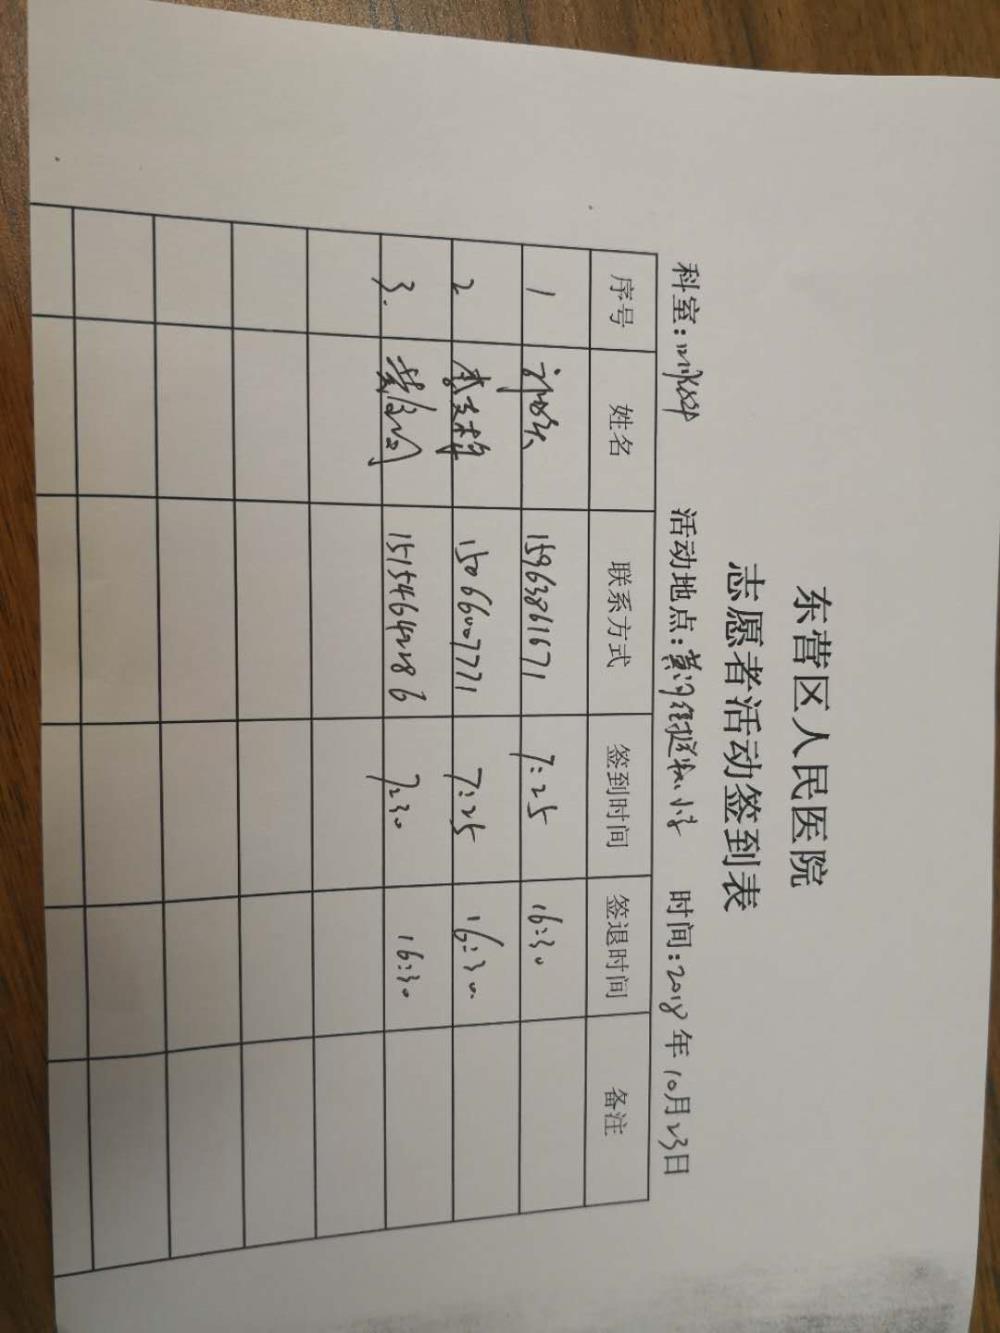 东营区人民医院
志愿者活动签到表
科室： 活动地点：黄河 小学 时间：2018年10月23日
序号 姓名 联系方式 签到时间 签退时间 备注
1 15963861671 7:25 16:30
2 15066007771 7:25 16:30
3. 15154642286 7:30 16:30